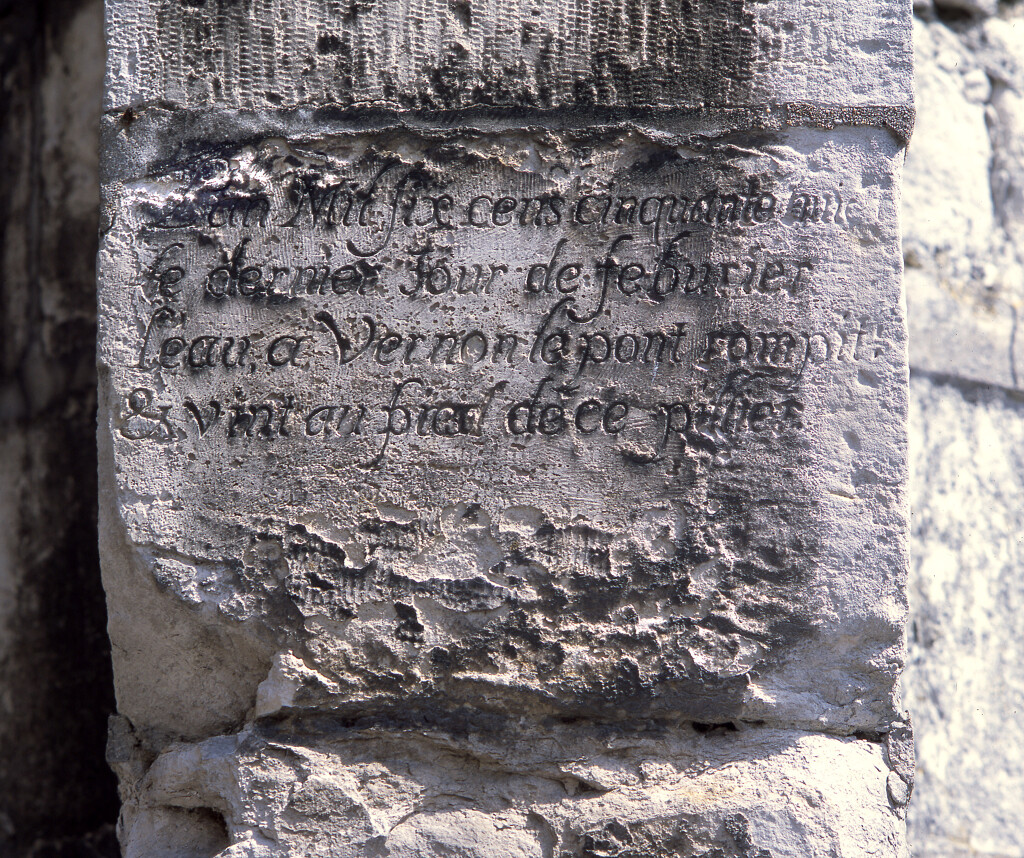 L'an Mil six cens cinquante une
le dernier Jour de feburier
l'eau, a Vernon le pont rompit
& vint au pied de ce pillier